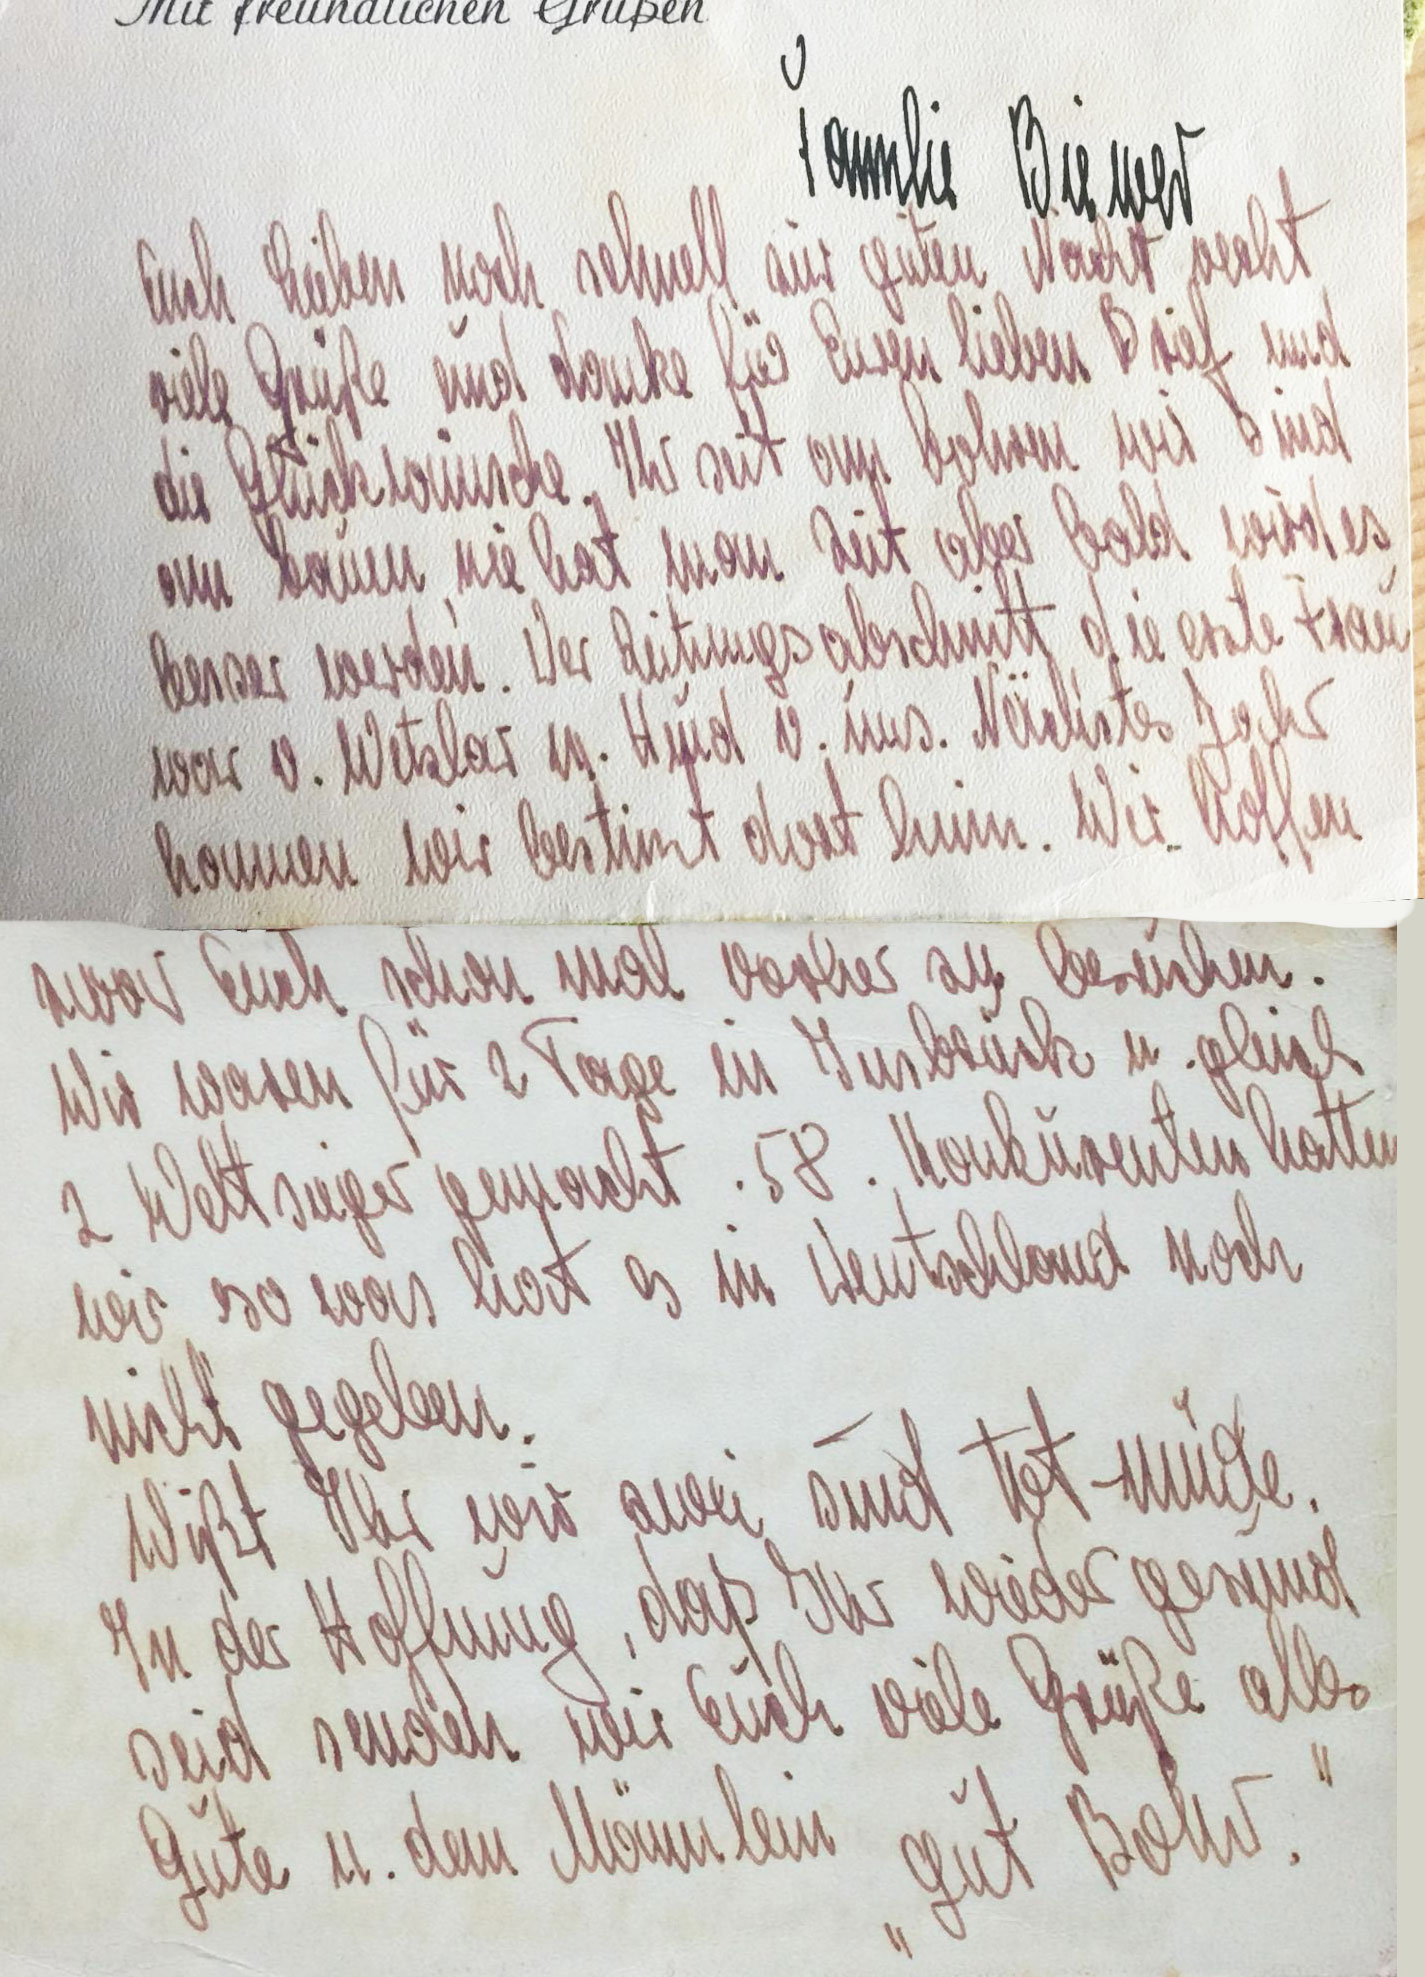 Mit freundlichen Grüßen
Familie Biewer
Euch Lieben noch schnell zur guten Nacht recht
viele Grüße und danke für Euren lieben Brief und
die Glückwünsche. Ihr seit am bohren wir sind
am bauen nie hat man Zeit aber bald wirds
besser werden. Der Zeitungsabschnitt die erste Frau
war v. Wetzlar u. Hund v. uns. Nächstes Jahr
kommen wir bestimt dort hinn. Wir hoffen
zwar Euch schon mal vorher zu besuchen.
Wir waren für 2 Tage in Insbruck u. gleich
2 Weltsieger gemacht. 58. Konkurenten hatten
wir, so was hat es in Deutschland noch
nicht gegeben.
Wißt Ihr wir zwei sind tot-müde.
In der Hoffnung, daß Ihr wieder gesund
seid senden wir Euch viele Grüße alles
Gute u. dem Männlein „gut Bohr."